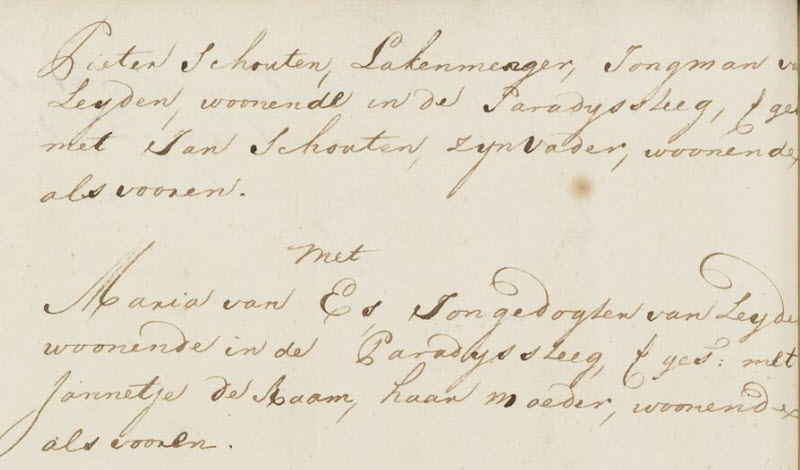 Pieter Schouten, Lakenmenger, Jongman va
Leyden, woonende in de Paradyssteeg, & ges
met Jan Schouten, zyn vader, woonende
als vooren.
Met
Maria van Es, Jongedogter van Leyde
woonende in de Paradyssteeg, & ges: met
Jannetje de Raam, haar moeder, woonende
als vooren.